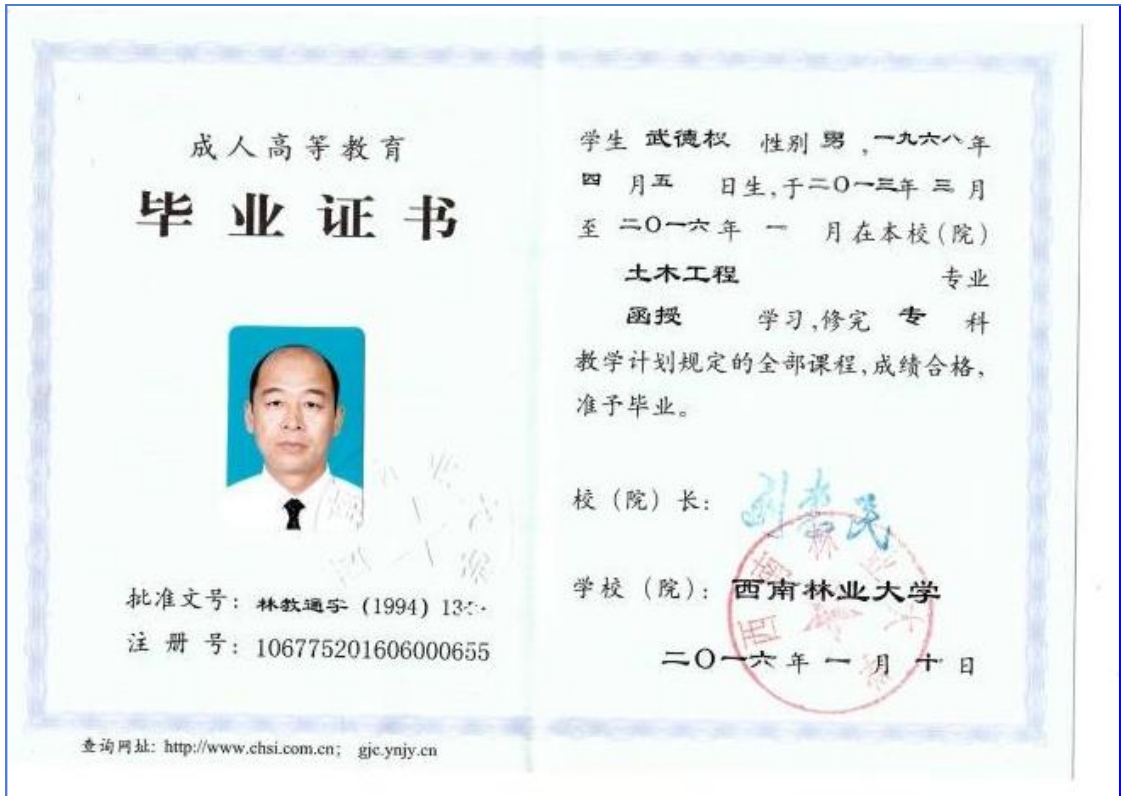 成人高等教育
毕业证书
批准文号：林教通字 (1994) 13
注册号：106775201606000655
查询网址: http://www.chsi.com.cn; gjc.ynjy.cn
学生 武德权 性别 男 ,一九六八年
四 月五 日生,于二〇一三年 三 月
至 二〇一六 年 一 月在本校(院)
土木工程 专业
函授 学习,修完 专 科
教学计划规定的全部课程,成绩合格,
准予毕业。
校（院）长：刘惠民
学校（院）：西南林业大学
二〇一六 年 一 月 十 日
西南林业大学